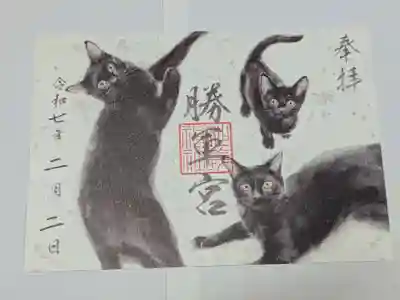 奉拝
勝軍宮
令和七年
二月二日